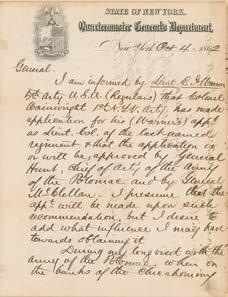 STATE OF NEW YORK.
Quartermaster General's Department,
New York Oct 4. 1862
General.
I am informed by Lieut E. F. Warner
5th Arty U.S.A. (Regulars) that Colonel
Wainwright 1st N.Y. Arty has made
application for his (Warner's) appt.
as Lieut. Col. of the last named
regiment & that the application is
or will be approved by General
Hunt, Chief of Arty of the Army
of the Potomac, and by General
McClellan. I presume that the
appt. will be made upon such
recommendation, but I desire to
add what influence I may have
towards obtaining it.
During my long visit with the
army of the Potomac, when on
the banks of the Chickahominy